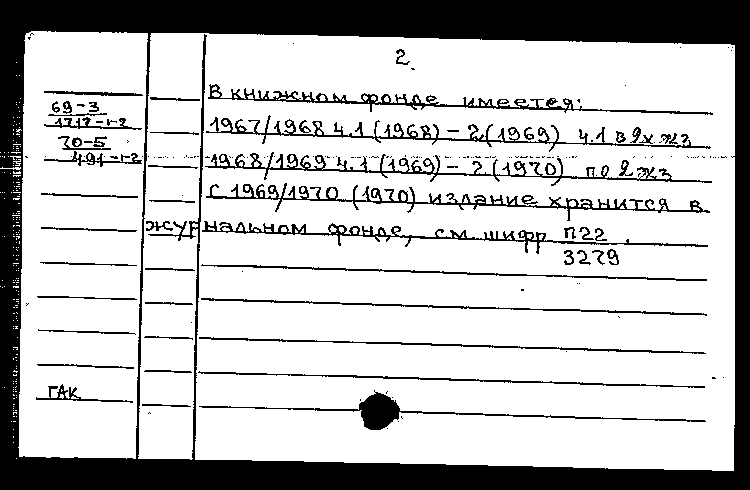 2.
69-3
1717-1-2
70-5
491-1-2
В книжном фонде имеется:
1967/1968 ч.1 (1968) – 2 (1969) ч.1 в 2х жз
1968/1969 ч.1 (1969) – 2 (1970) по 2 жз
С 1969/1970 (1970) издание хранится в
журнальном фонде, см. шифр П22
3279
ГАК